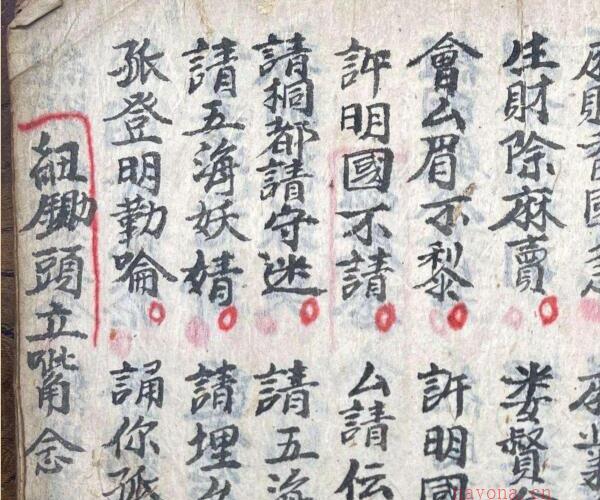 生財除麻賣 娄賢
會厶眉不黎 許明國
許明國不請 厶請伝
請桐都請守迷 請五海
請五海妖婧 請埋
孤登明勤喻 誦你孤
鋤頭立嘴念
nayona.cn